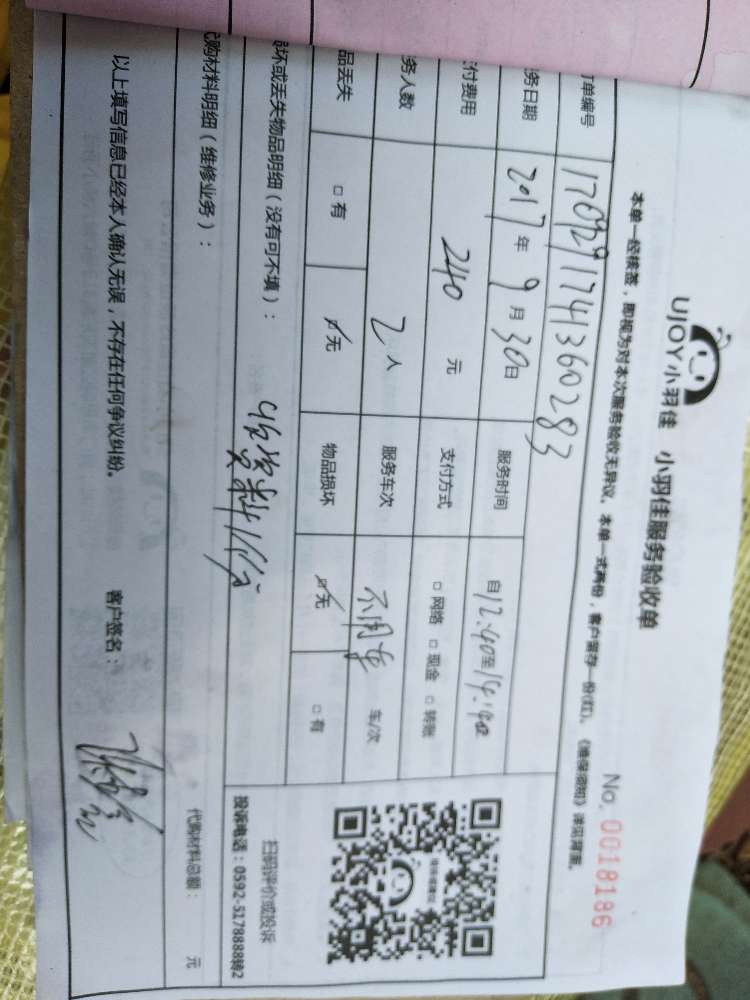 UJOY小羽佳 小羽佳服务验收单
No. 0018186
本单一经核签，即视为对本次服务验收无异议。本单一式两份，客户留存一份(红)。《维保须知》详见背面。
订单编号 1709291741360283
务日期 2017年9月30日 服务时间 自12:40至14:40
付费用 240元 支付方式 □网络 □现金 □转账
务人数 2人 服务车次 不用车 车/次
品丢失 □有 ☑无 物品损坏 ☑无 □有
损坏或丢失物品明细（没有可不填）：
代购材料明细（维修业务）：
代购材料总额： 元
以上填写信息已经本人确认无误，不存在任何争议纠纷。 客户签名：
扫码评价或投诉
投诉电话：0592-5178888转2